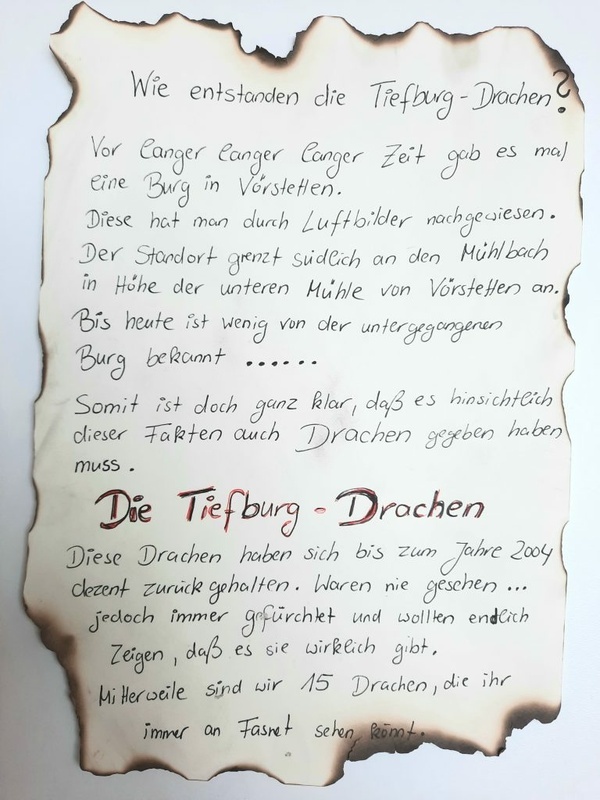 Wie entstanden die Tiefburg-Drachen?
Vor langer langer langer Zeit gab es mal
eine Burg in Vörstetten.
Diese hat man durch Luftbilder nachgewiesen.
Der Standort grenzt südlich an den Mühlbach
in Höhe der unteren Mühle von Vörstetten an.
Bis heute ist wenig von der untergegangenen
Burg bekannt ......
Somit ist doch ganz klar, daß es hinsichtlich
dieser Fakten auch Drachen gegeben haben
muss.
Die Tiefburg-Drachen
Diese Drachen haben sich bis zum Jahre 2004
dezent zurückgehalten. Waren nie gesehen ...
jedoch immer gefürchtet und wollten endlich
Zeigen, daß es sie wirklich gibt.
Mitterweile sind wir 15 Drachen, die ihr
immer an Fasnet sehen könnt.